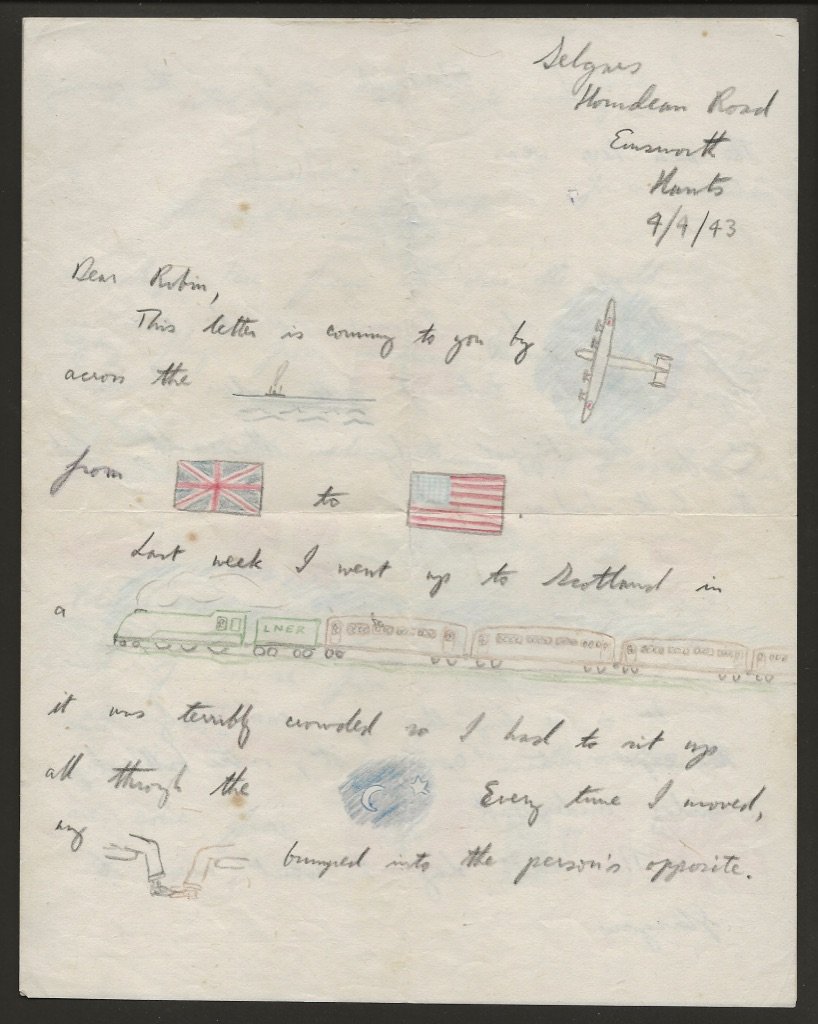 Horndean Road
Emsworth
Hants
4/4/43
Dear Robin,
This letter is coming to you by
across the
from
to
.
Last week I went up to Scotland in
a
LNER
it was terribly crowded so I had to sit up
all through the
Every time I moved,
my
bumped into the person's opposite.